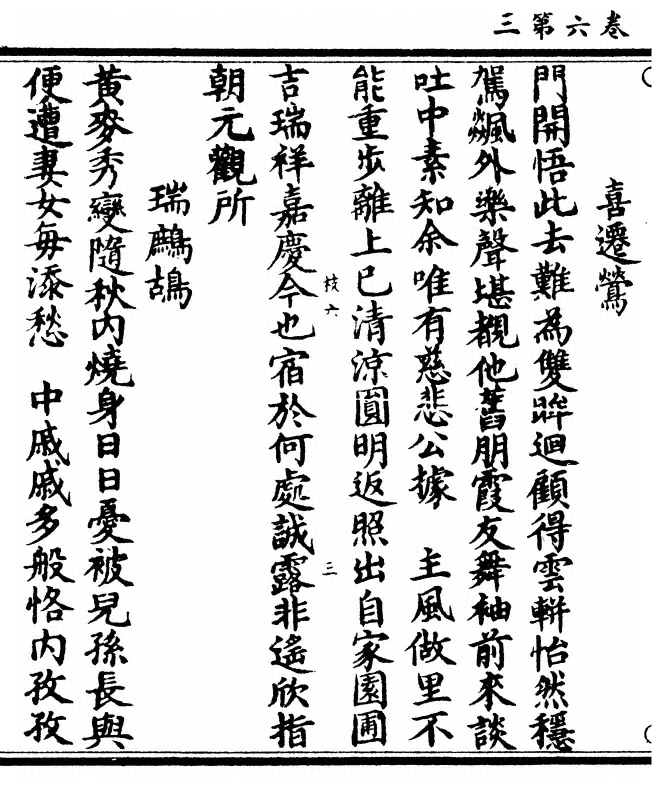 卷六第三
喜遷鶯
門開悟此去難為雙眸迴顧得雲軿怡然穩
駕飇外樂聲堪覩他舊朋霞友舞袖前來談
吐中素知余唯有慈悲公據　主風做里不
能重步離上已清涼圓明返照出自家園圃
枝六　三
吉瑞祥嘉慶今也宿於何處誠露非遙欣指
朝元觀所
瑞鷓鴣
黃麥秀變隨秋內燒身日日憂被兒孫長與
便遭妻女每添愁　中戚戚多般恪內孜孜